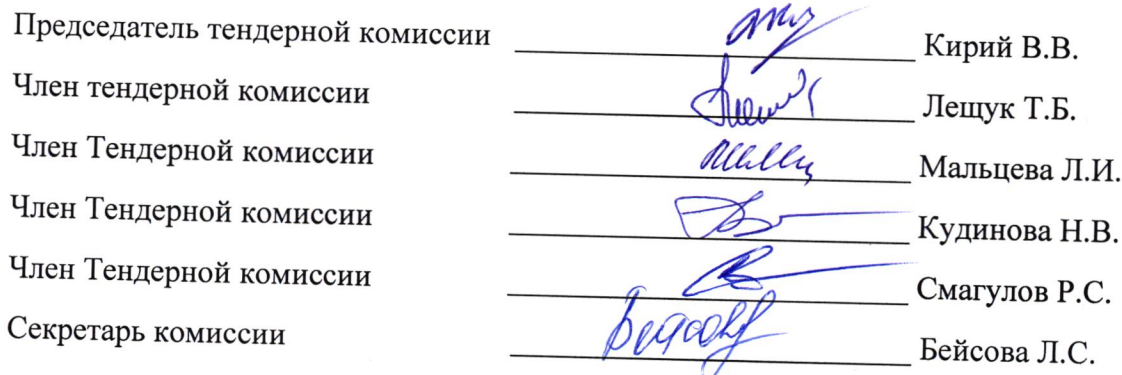 Председатель тендерной комиссии Кирий В.В.
Член тендерной комиссии Лещук Т.Б.
Член Тендерной комиссии Мальцева Л.И.
Член Тендерной комиссии Кудинова Н.В.
Член Тендерной комиссии Смагулов Р.С.
Секретарь комиссии Бейсова Л.С.